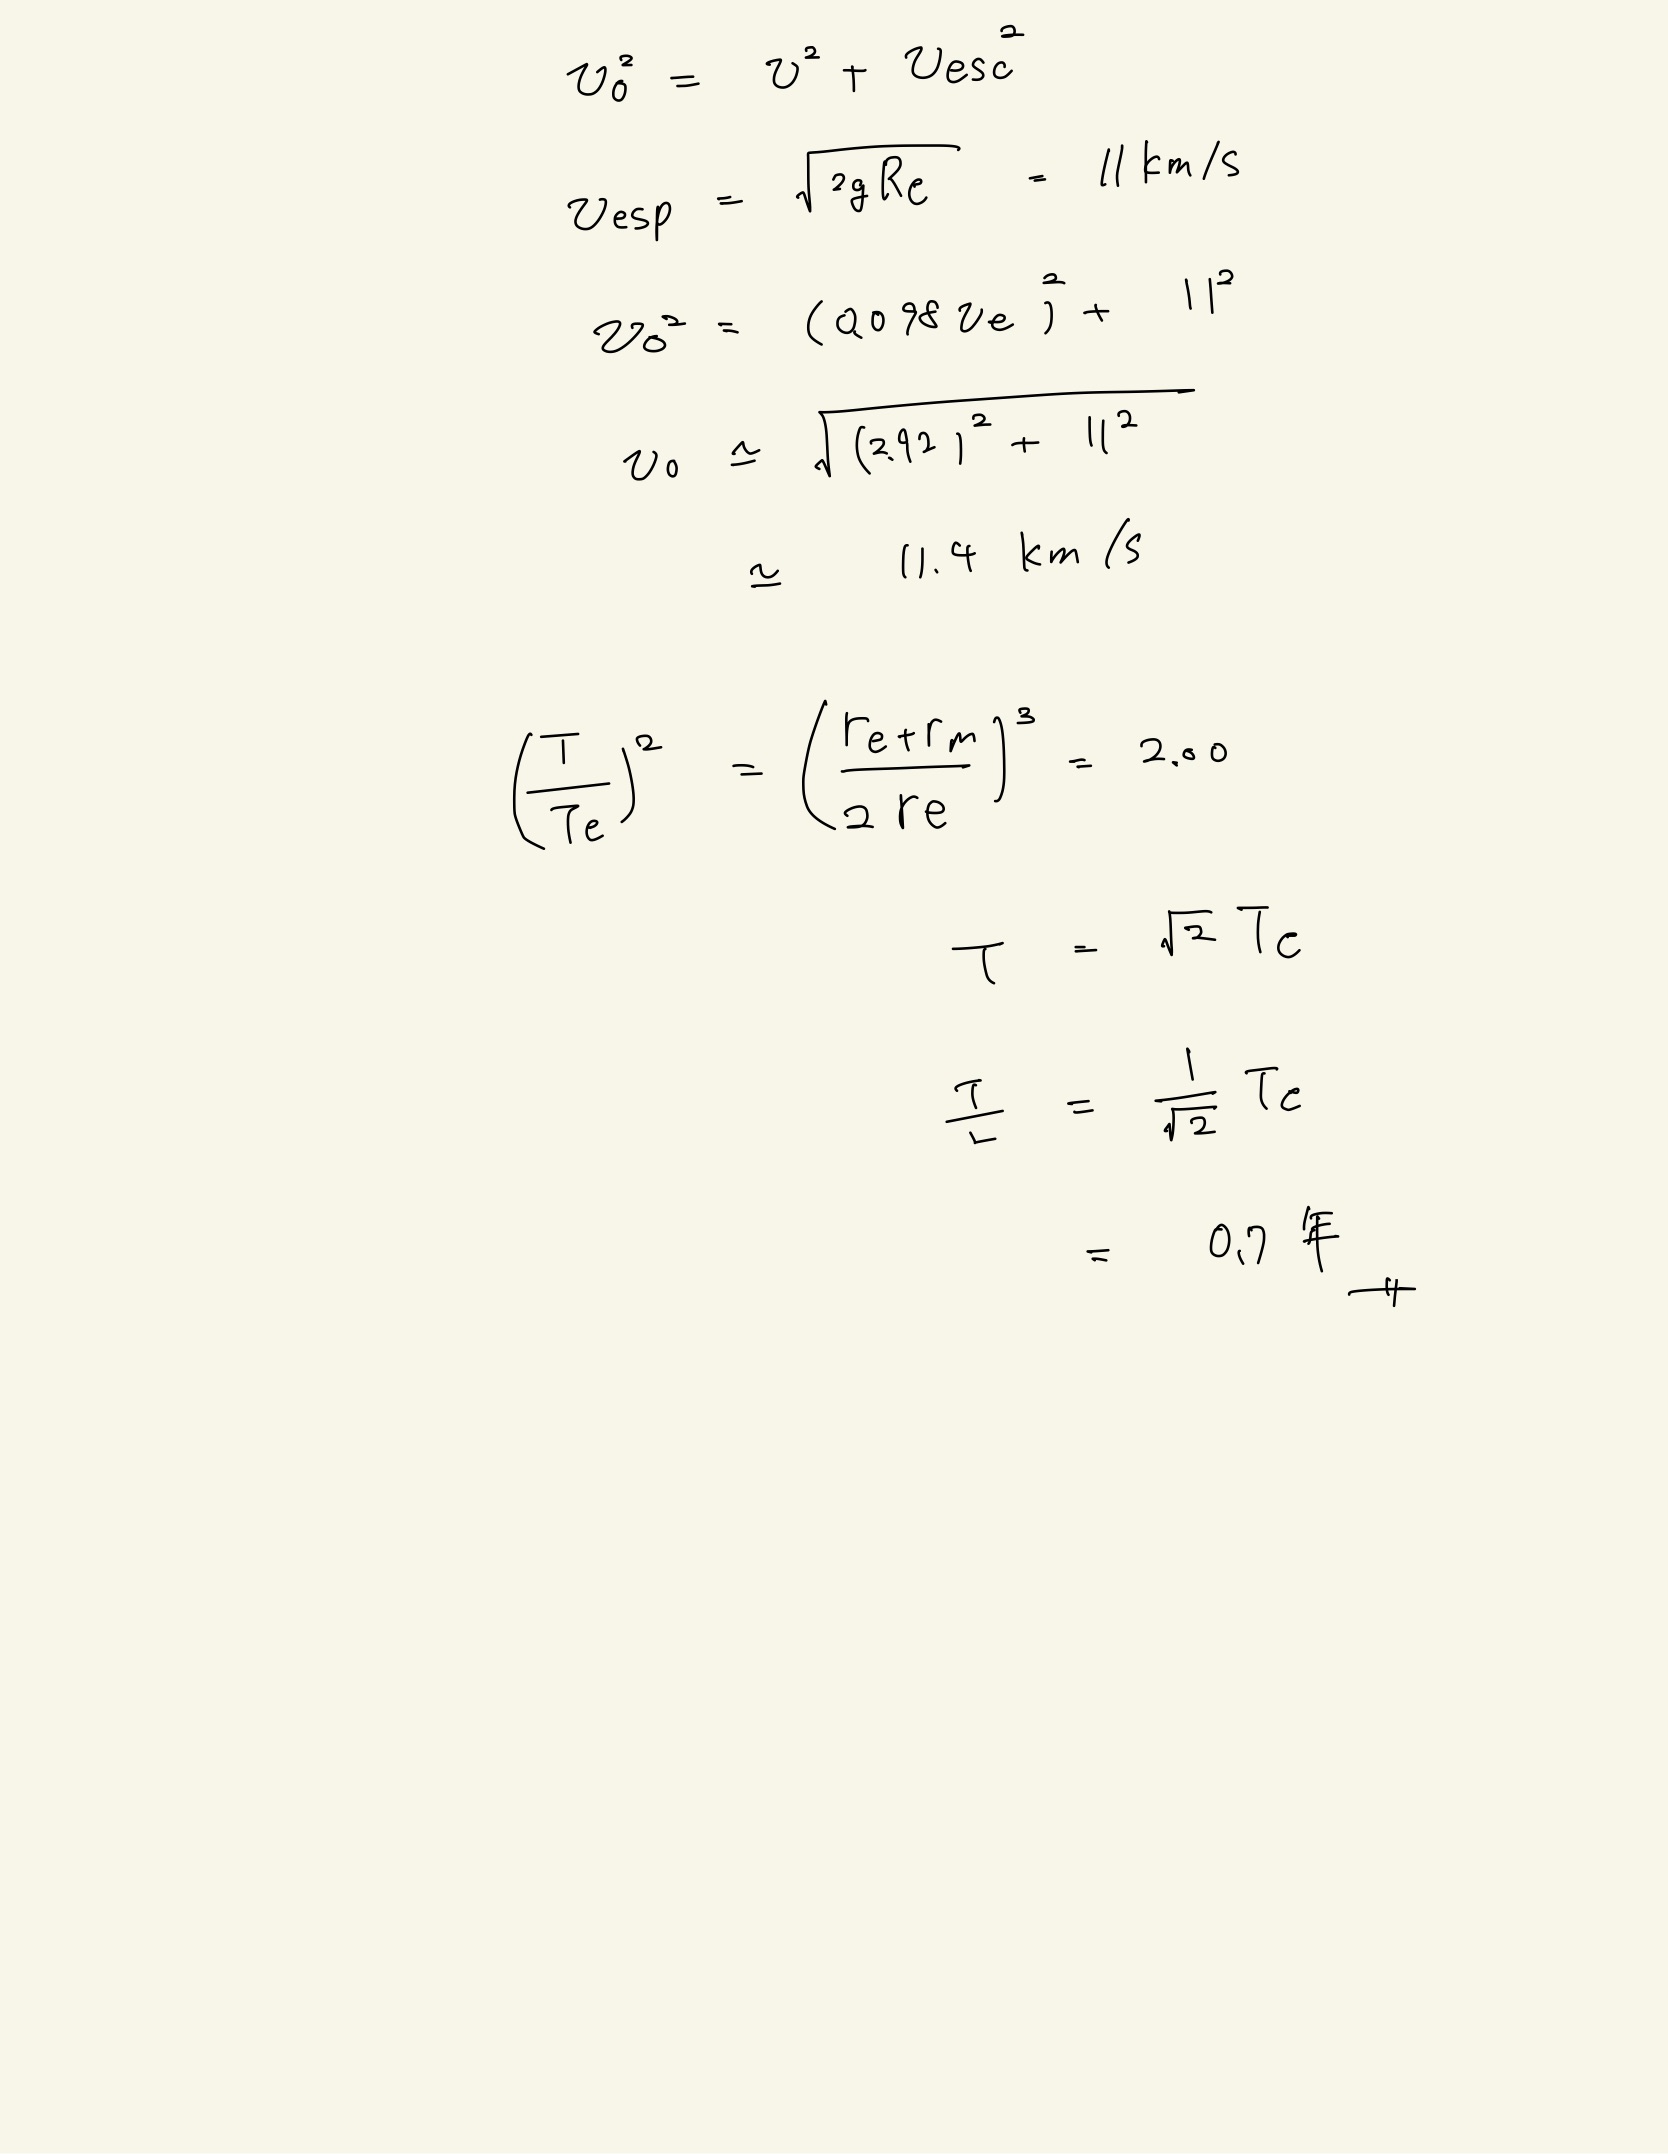 v₀² = v² + vesc²
vesp = √(2gRe) = 11 km/s
v₀² = (0.098 ve)² + 11²
v₀ ≃ √((2.92)² + 11²)
≃ 11.4 km/s
(T/Te)² = ((re+rm)/(2re))³ = 2.00
T = √2 Te
T/2 = 1/√2 Te
= 0.7 年